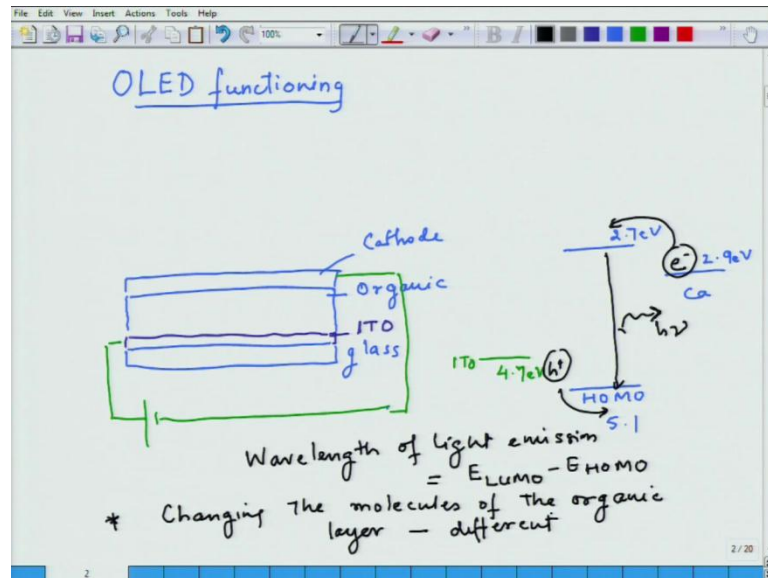 File Edit View Insert Actions Tools Help
100%
B I
OLED functioning
Cathode
organic
ITO
glass
2.7eV
e⁻ 2.9eV
Ca
hν
ITO 4.7eV h⁺
HOMO
5.1
Wavelength of light emission
= E_LUMO - E_HOMO
* Changing the molecules of the organic
layer - different
2 / 20
2